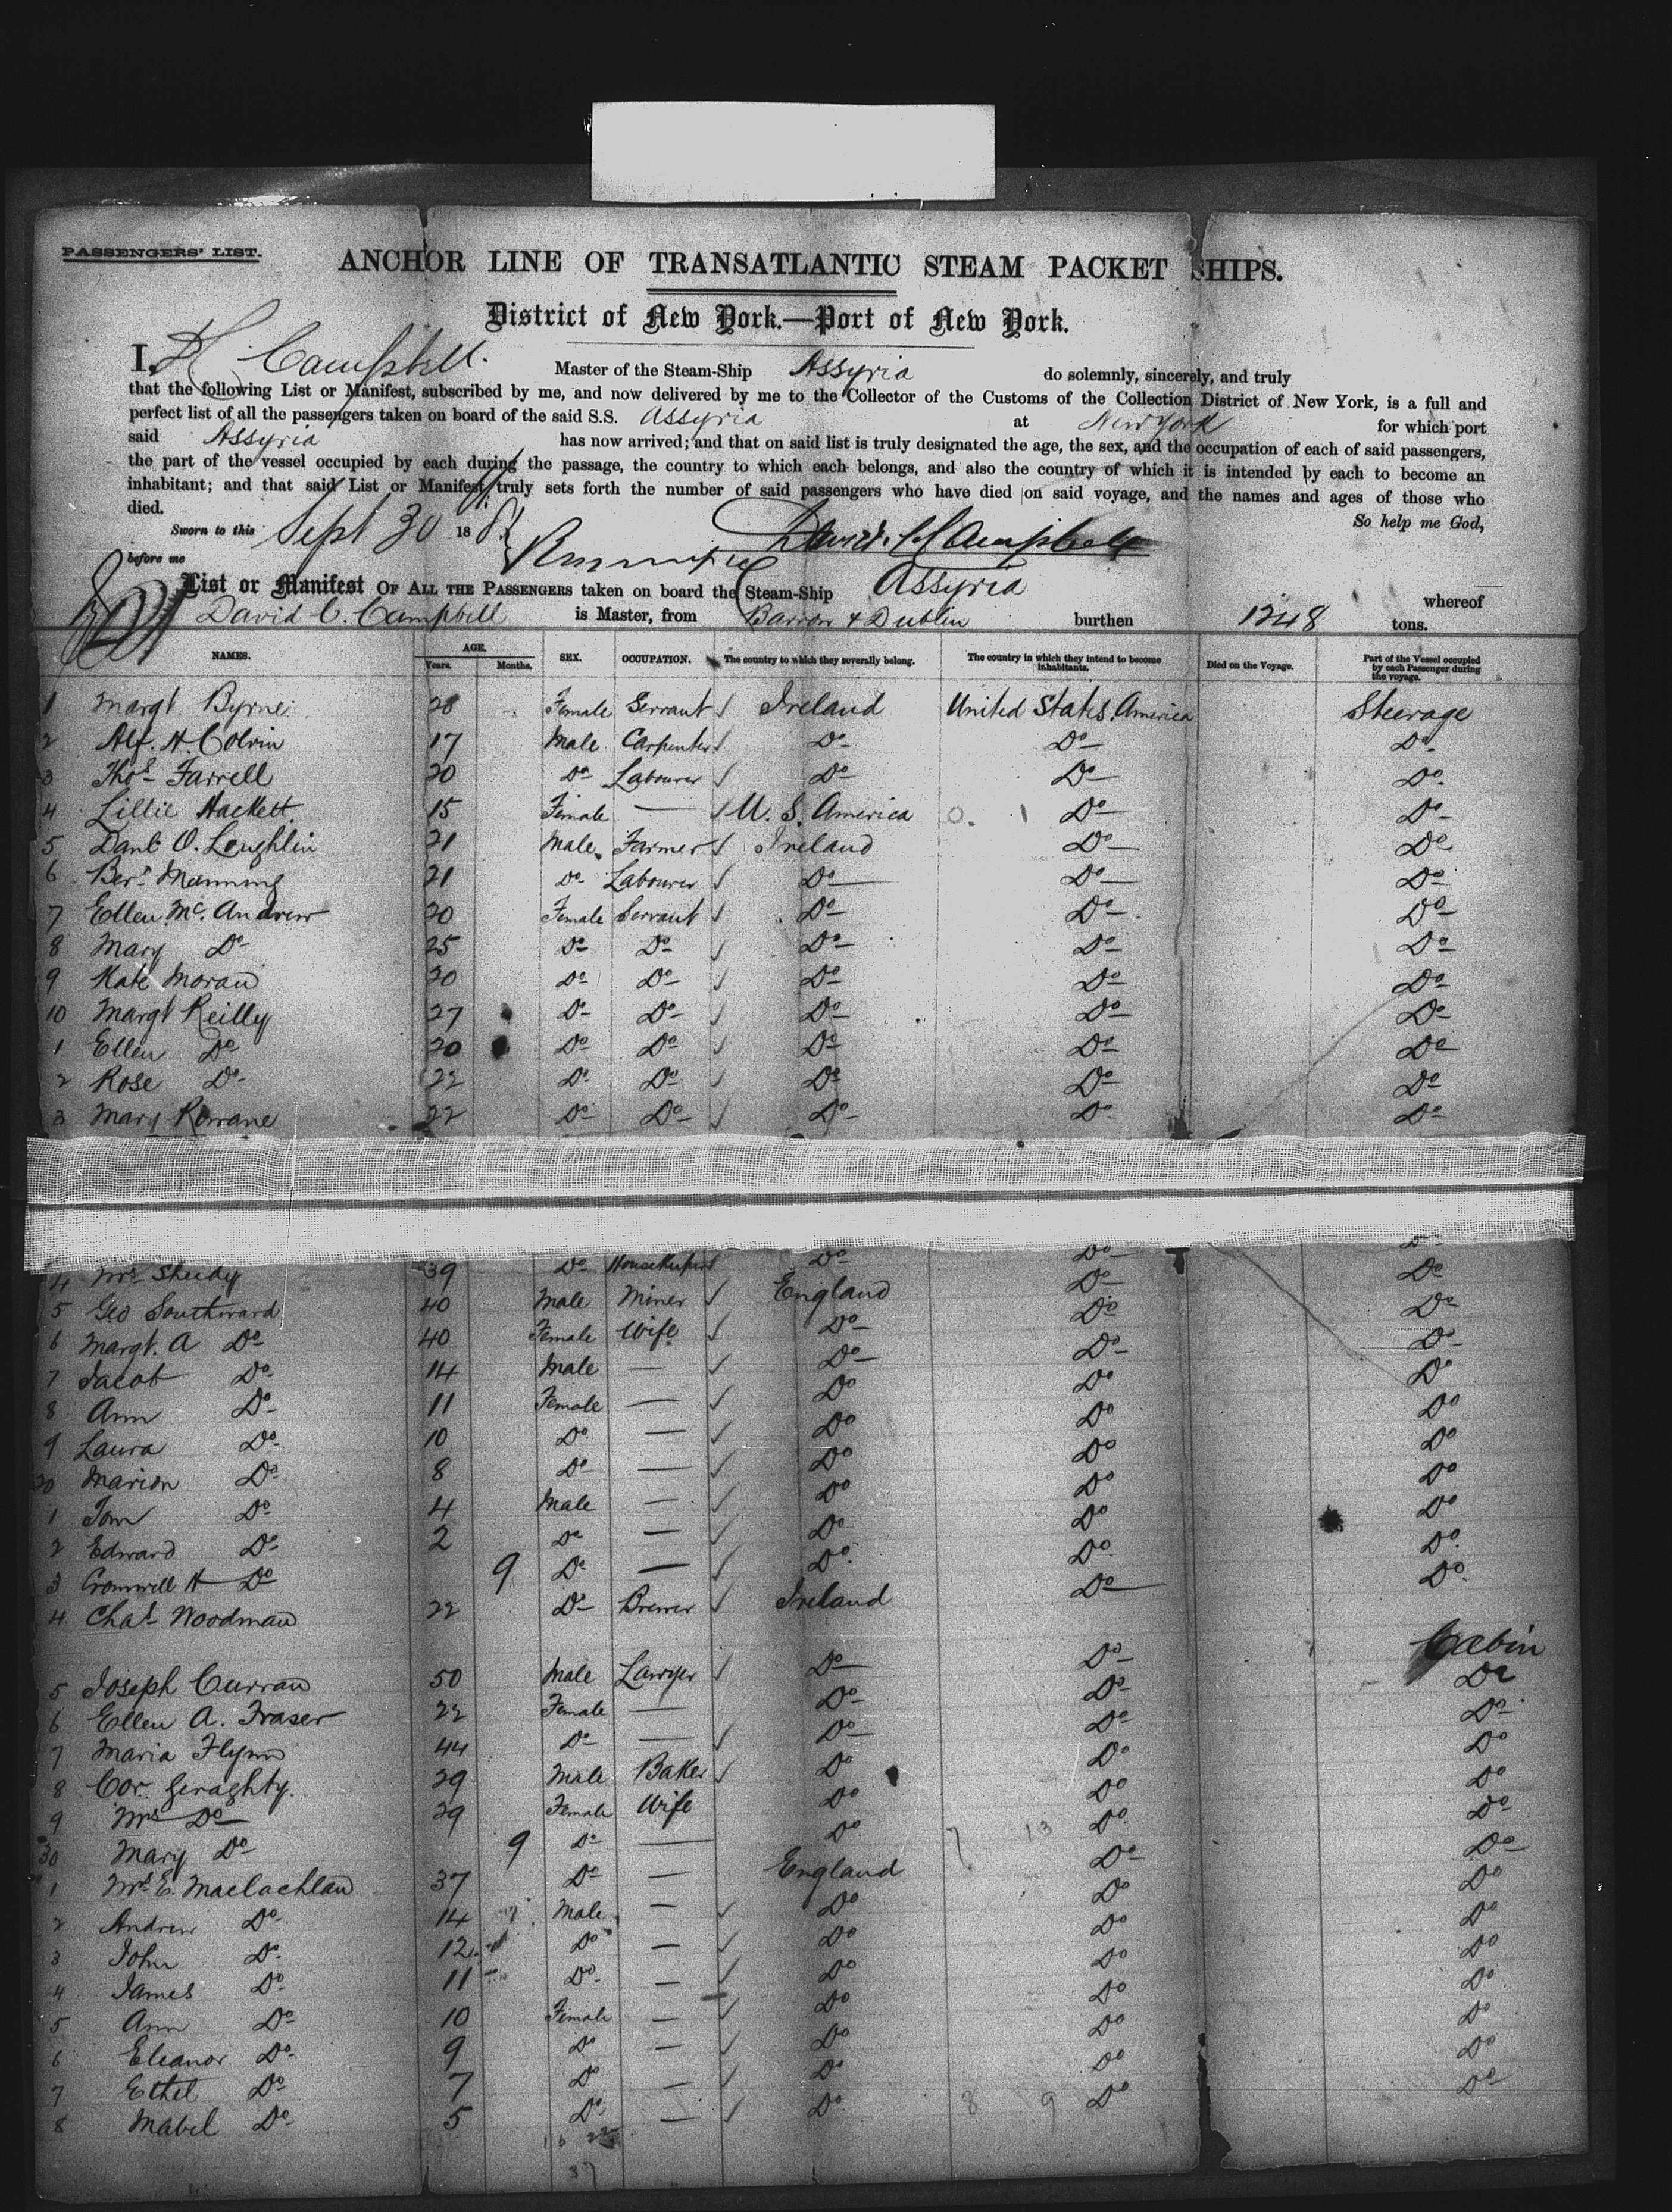 PASSENGERS' LIST.
ANCHOR LINE OF TRANSATLANTIC STEAM PACKET SHIPS.
District of New York.—Port of New York.
I, D C Campbell. Master of the Steam-Ship Assyria do solemnly, sincerely, and truly
that the following List or Manifest, subscribed by me, and now delivered by me to the Collector of the Customs of the Collection District of New York, is a full and
perfect list of all the passengers taken on board of the said S.S. Assyria at New York for which port
said Assyria has now arrived; and that on said list is truly designated the age, the sex, and the occupation of each of said passengers,
the part of the vessel occupied by each during the passage, the country to which each belongs, and also the country of which it is intended by each to become an
inhabitant; and that said List or Manifest truly sets forth the number of said passengers who have died on said voyage, and the names and ages of those who
died. So help me God,
Sworn to this Sept 30 188
before me David C Campbell
List or Manifest OF ALL THE PASSENGERS taken on board the Steam-Ship Assyria whereof
David C. Campbell is Master, from Barrow & Dublin burthen 1248 tons.
NAMES. AGE. Years. Months. SEX. OCCUPATION. The country to which they severally belong. The country in which they intend to become inhabitants. Died on the Voyage. Part of the Vessel occupied by each Passenger during the voyage.
1 Margt Byrne 28 Female Servant Ireland United States. America Steerage
2 Alf. H. Colvin 17 Male Carpenter Do Do Do
3 Thos Farrell 20 Do Labourer Do Do Do
4 Lillie Hackett. 15 Female — U. S. America 0. 1 Do Do
5 Danl O. Loughlin 21 Male Farmer Ireland Do Do
6 Berd Manning 21 Do Labourer Do Do Do
7 Ellen Mc. Andrew 20 Female Servant Do Do Do
8 Mary Do 25 Do Do Do Do Do
9 Kate Moran 20 Do Do Do Do Do
10 Margt Reilly 27 Do Do Do Do Do
1 Ellen Do 20 Do Do Do Do Do
2 Rose Do 22 Do Do Do Do Do
3 Mary Rowane 22 Do Do Do Do Do
4 Mrs Sheedy 39 Do Housekeeper Do Do Do
5 Geo Southward 40 Male Miner England Do Do
6 Margt. A Do 40 Female Wife Do Do Do
7 Jacob Do 14 Male — Do Do Do
8 Ann Do 11 Female — Do Do Do
9 Laura Do 10 Do — Do Do Do
20 Marion Do 8 Do — Do Do Do
1 Tom Do 4 Male — Do Do Do
2 Edward Do 2 Do — Do Do Do
3 Cromwell H Do 9 Do — Do Do Do
4 Chas Woodman 22 Do Brewer Ireland Do Do
Cabin
5 Joseph Curran 50 Male Lawyer Do Do Do
6 Ellen A. Fraser 22 Female — Do Do Do
7 Maria Flynn 44 Do — Do Do Do
8 Cor. Geraghty. 29 Male Baker Do Do Do
9 Mrs Do 29 Female Wife Do Do Do
30 Mary Do 9 Do — Do 13 Do Do
1 Mrs E. Maclachlan 37 Do — England Do Do
2 Andrew Do 14 Male — Do Do Do
3 John Do 12 Do — Do Do Do
4 James Do 11 Do — Do Do Do
5 Ann Do 10 Female — Do Do Do
6 Eleanor Do 9 Do — Do Do Do
7 Ethel Do 7 Do — Do Do Do
8 Mabel Do 5 Do — Do 8 9 Do Do